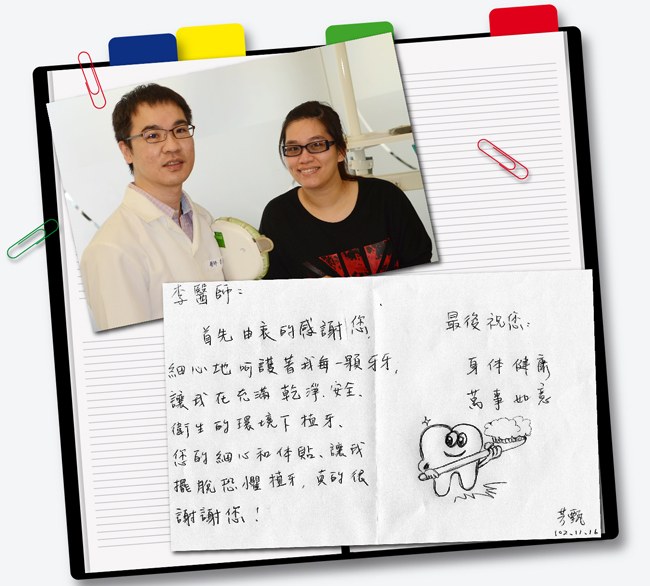 李醫師：
首先由衷的感謝您，
細心地呵護著我每一顆牙牙，
讓我在充滿乾淨、安全、
衛生的環境下植牙、
您的細心和体貼、讓我
擺脫恐懼植牙，真的很
謝謝您！
最後祝您：
身体健康
萬事如意
芳甄
102.11.16